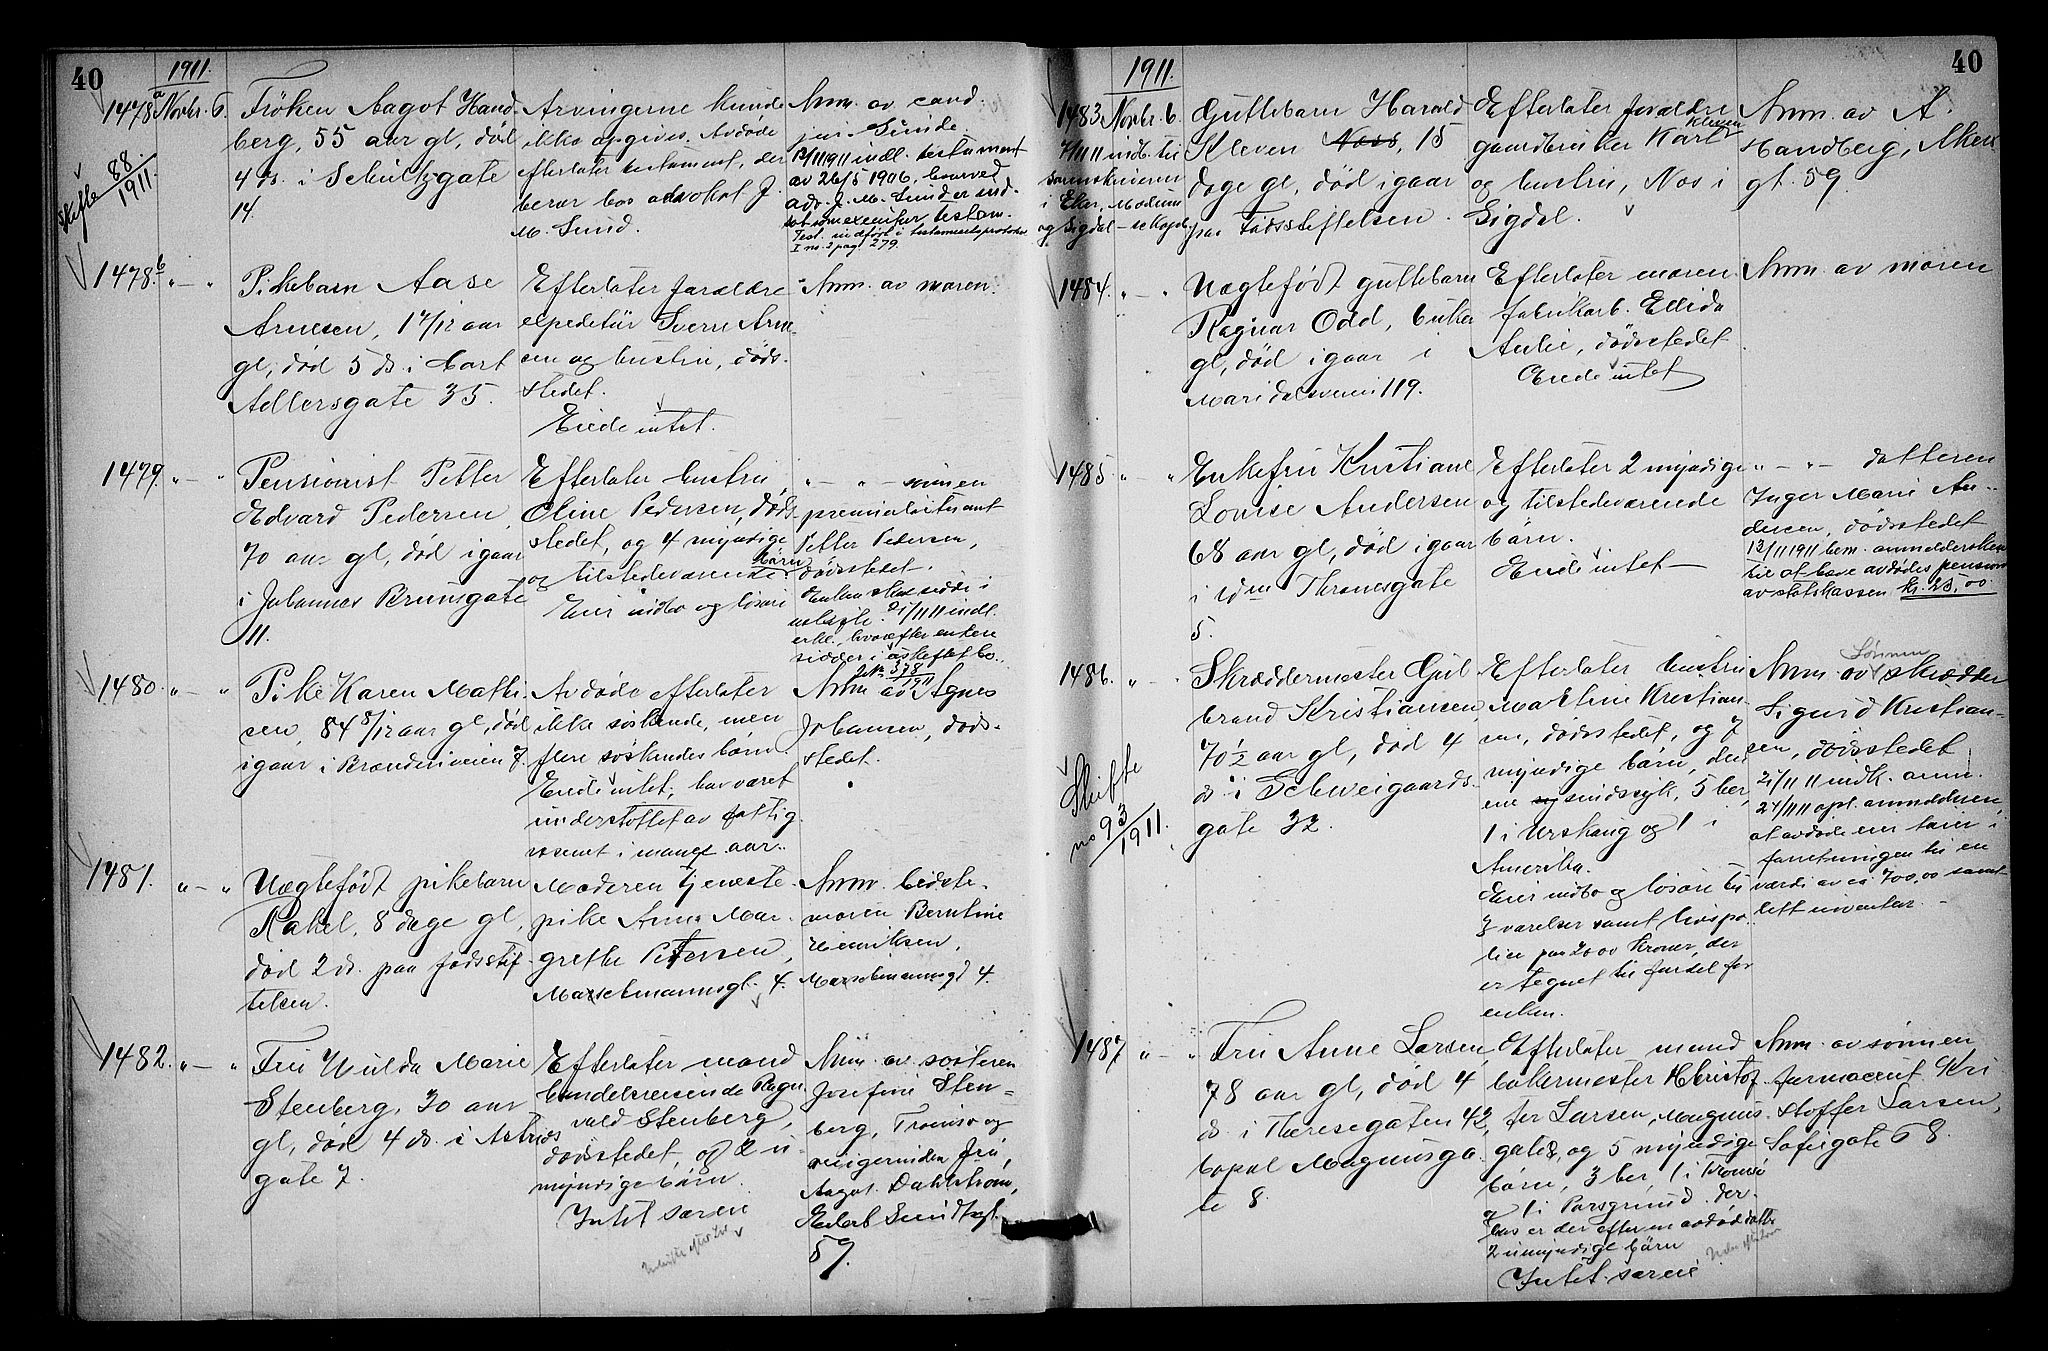 40
1911.
1478a Novbr. 6.
Skifte 88/1911.
Frøken Aagot Hand-
berg, 55 aar gl, død
4 ds. i Schultzgate
14.
Arvingerne kunde
ikke opgives. Avdøde
efterlater testament, der
beror hos advokat J.
M. Sund.
Anm. av cand.
jur. Sinde.
13/11 1911 indl. testament
av 26/5 1906, hvorved
adv. J. M. Sund er ind-
sat som executor testam.
Test. indført i testamentsprotokol
I no. 2 pag. 279.
1478b " — "
Pikebarn Aase
Arnesen, 1 7/12 aar
gl, død 5 ds i Cort
Adlersgate 35.
Efterlater forældre
expeditør Sverre Arne-
sen og hustru, døds-
stedet.
Eiede intet.
Anm. av moren.
1479. " — "
Pensionist Petter
Edvard Pedersen,
70 aar gl, død igaar
i Johannes Brunsgate
11.
Efterlater hustru
Oline Pedersen, døds-
stedet, og 4 myndige
og tilstedeværende børn
Eier indbo og løsøre
" — " — sønnen
premierløitnant
Petter Pedersen,
dødsstedet.
Enken skal sidde i
uskifte. 21/11 11 indl.
erkl. hvorefter enken
sidder i uskiftet bo.
1480. " — "
Pike Karen Mathi-
sen, 84 8/12 aar gl, død
igaar i Brænderiveien 7.
Avdøde efterlater
ikke søskende, men
flere søskendes børn
Eiede intet, har været
understøttet av fattig-
væsenet i mange aar.
378/1911
Anm av Agnes
Johansen, døds-
stedet.
1481. " — "
Uægtefødt pikebarn
Rakel, 8 dage gl,
død 2 ds. paa fødsstif-
telsen.
Moderen tjeneste-
pike Anna Mar-
grethe Petersen,
Marselmannsgt. 4.
Anm. bedste-
moren Berntine
Henriksen,
Marselmannsgt 4.
1482. " — "
Fru Hulda Marie
Stenberg, 30 aar
gl, død 4 ds. i Astrids
gate 7.
Efterlater mand
handelsreisende Ragn-
vald Stenberg,
dødsstedet, og 2 u-
myndige børn.
Intet særeie
Anm. av søsteren
Josefine Sten-
berg, Tromsø og
svigerinden fru
Aagot Dahlstrøm,
Eilert Sundtsgt.
59.
40
1911.
1483 Novbr. 6.
7/11 11 indb. til
sorenskriveren
i Eker, Modum
og Sigdal
Guttebarn Harald
Kleven Noss, 15
dage gl, død igaar
paa Fødsstiftelsen.
Efterlater forældre
gaardbruker Karl Kleven
og hustru, Nos i
Sigdal.
Anm. av A.
Handberg, Akers
gt. 59.
1484. " — "
Uægtefødt guttebarn
Ragnar Odd, uker
gl, død igaar i
Maridalsveien 119.
Efterlater moren
fabrikarb. Ellida
Aulie, dødsstedet
Eiede intet
Anm. av moren
1485 " — "
Enkefru Kristiane
Lovise Andersen
68 aar gl, død igaar
i Wm Thranesgate
5.
Efterlater 2 myndige
og tilstedeværende
børn.
Eiede intet —
" — " — datteren
Inger Marie An-
dersen, dødsstedet
13/11 1911 bem. anmeldersken
til at hæve avdødes pension
av statskassen kr. 25,00
1486. " — "
Skifte
no 93/1911.
Skræddermester Gul-
brand Kristiansen,
70 1/2 aar gl, død 4
ds i Schweigaards-
gate 32.
Efterlater hustru
Mathne Kristian-
sen, dødsstedet, og 7
myndige børn, den
ene sindssyk, 5 her,
1 i Urskaug og 1 i
Amerika.
Eier indbo og løsøre til
3 værelser samt livspo-
lice paa 2000 Kroner, der
er tegnet til fordel for
enken.
Sønnen
Anm. av skrædder
Sigurd Kristian-
sen, dødsstedet
21/11 11 indk. anm.
27/11 11 opl. anmelderen
at avdøde eier varer i
forretningen til en
værdi av ca. 700,00 samt
litt inventar. —
1487 " — "
Fru Anne Larsen,
78 aar gl, død 4
ds. i Theresegaten 42,
bopæl Magnusga-
te 8.
Efterlater mand
bakermester Kristof-
fer Larsen, Magnus-
gate 8, og 5 myndige
børn, 3 her, 1 i Tromsø
1 i Porsgrund. Des-
uten er der efter en avdød datter
2 umyndige børn
Intet særeie
Anm. av sønnen
farmaceut Kri
stoffer Larsen,
Sofiegate 68.